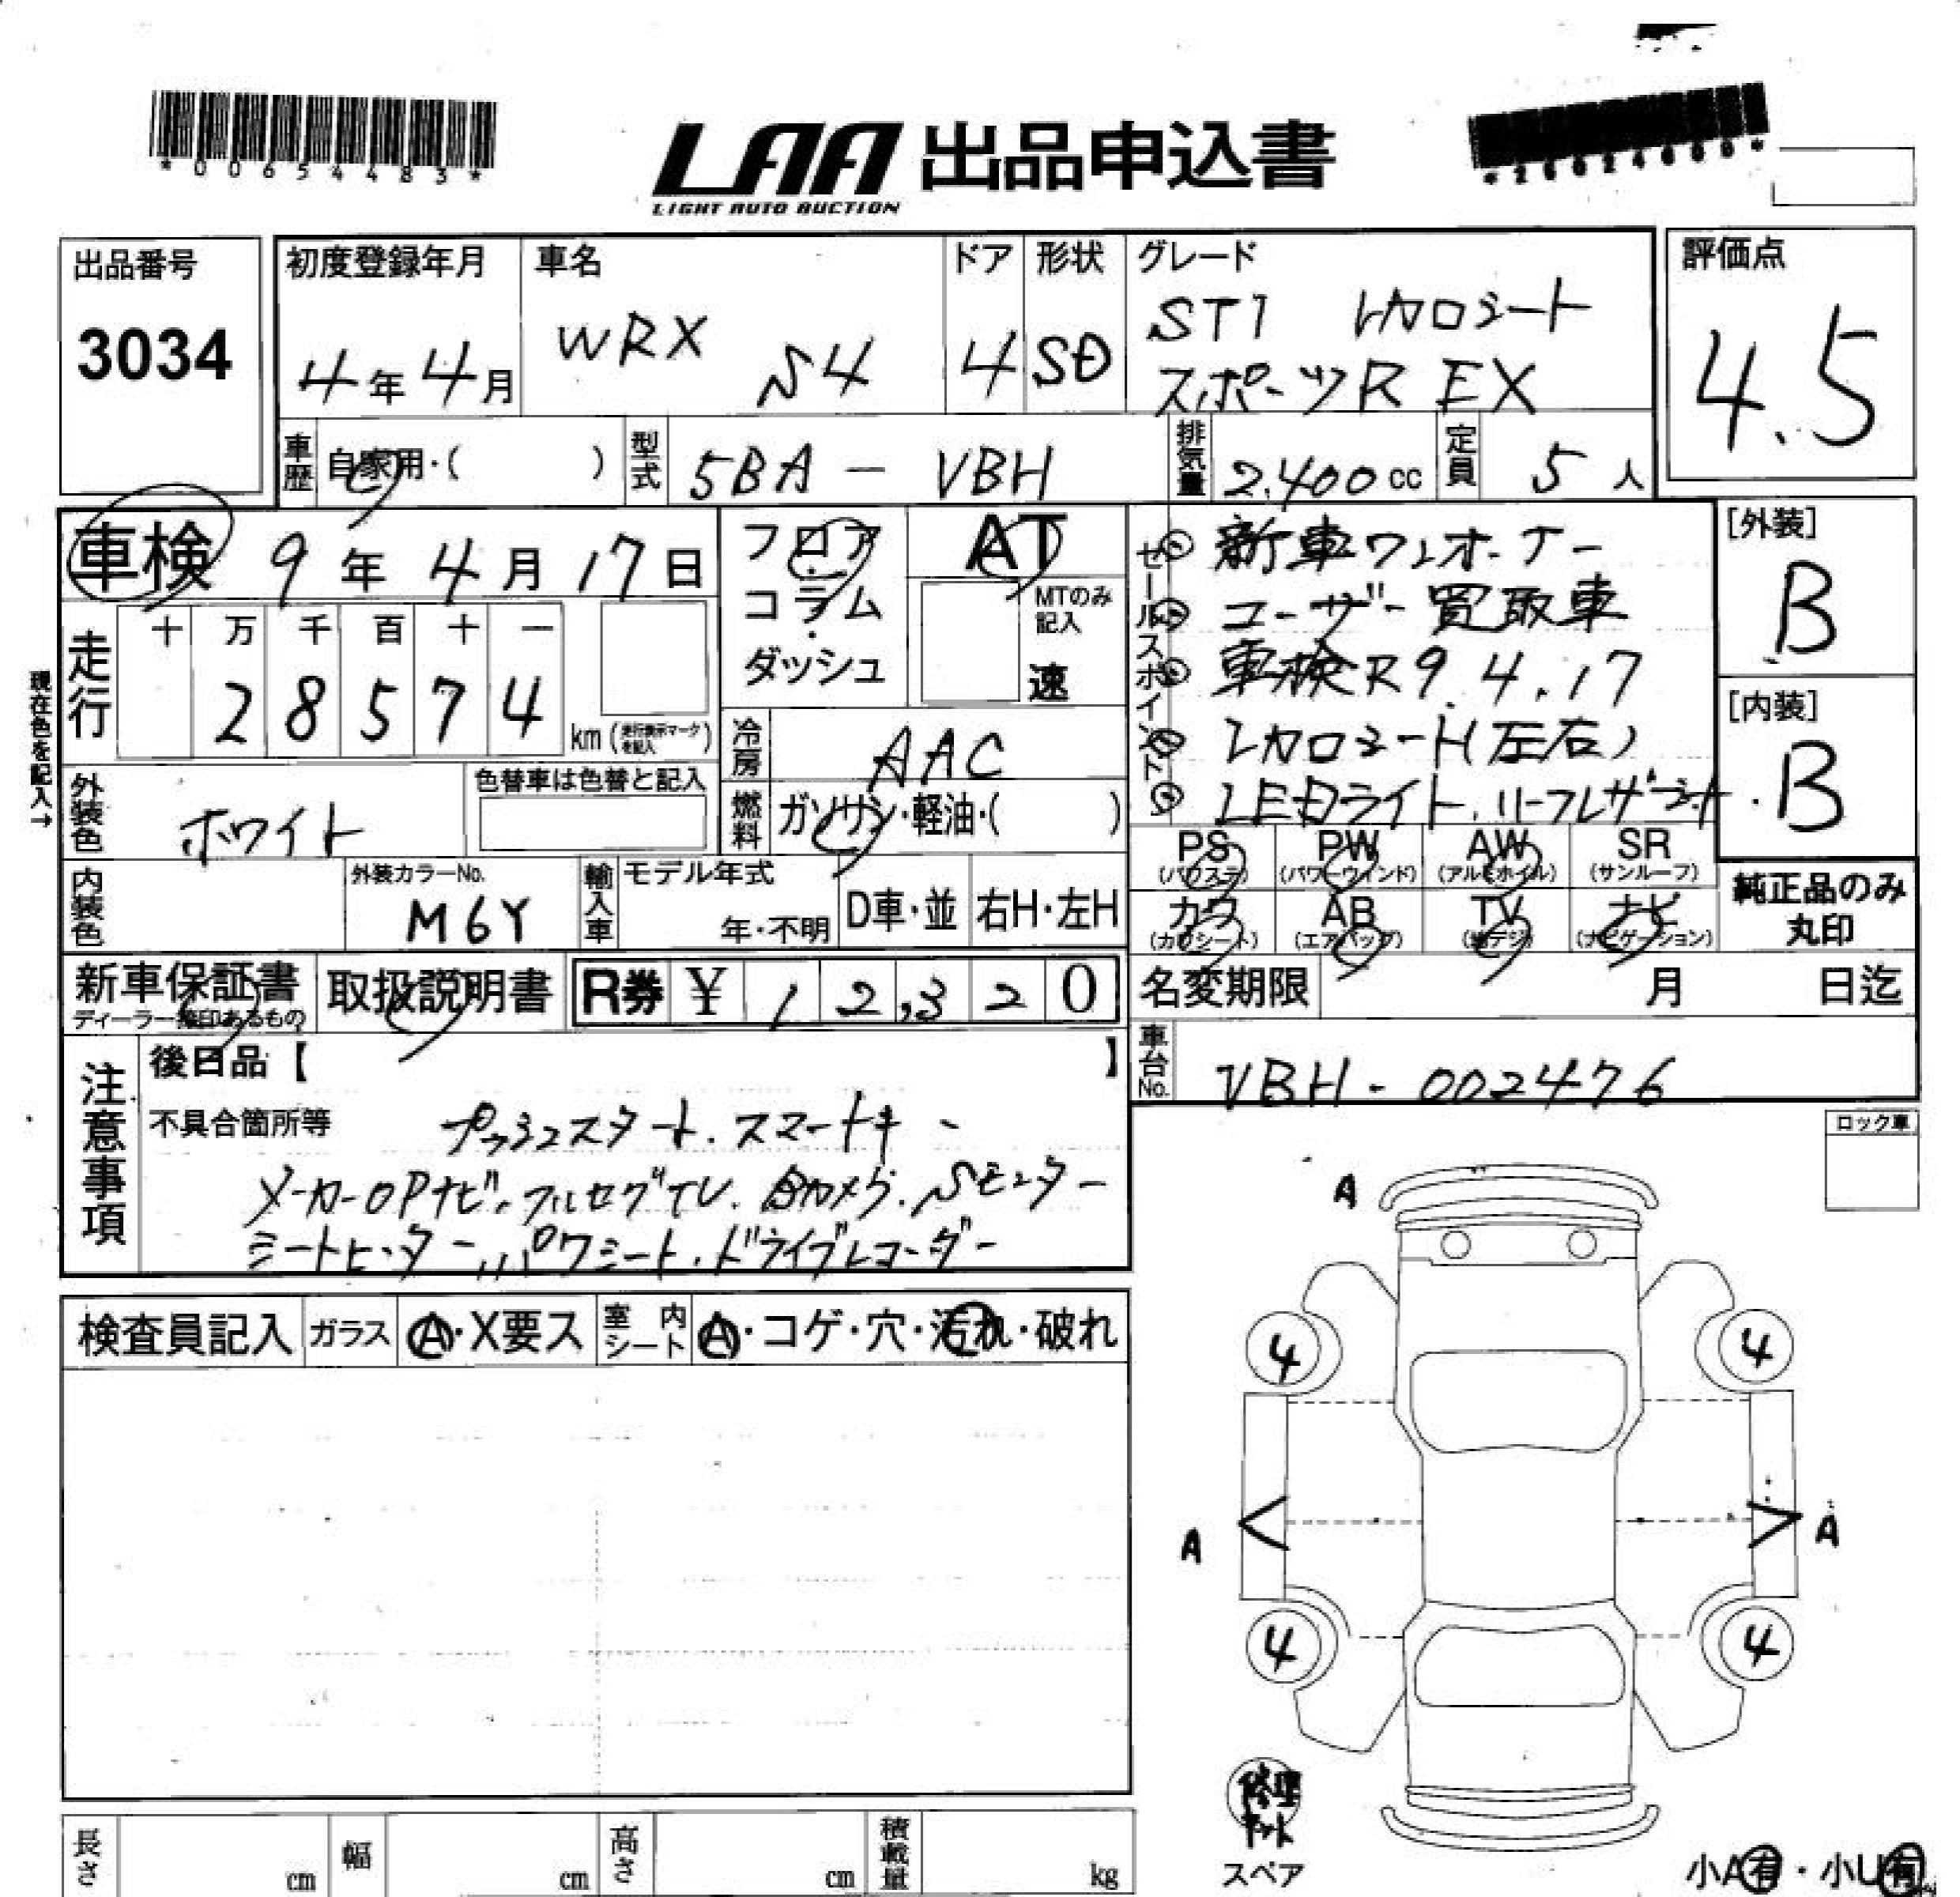 *00654483*
LAA 出品申込書
LIGHT AUTO AUCTION
出品番号
3034
初度登録年月
4年4月
車名
WRX S4
ドア
4
形状
SD
グレード
STI レカロシート
スポーツR EX
評価点
4.5
車歴 自家用・( )
型式 5BA-VBH
排気量 2.400cc
定員 5人
車検 9年4月17日
フロア・コラム・ダッシュ
AT
MTのみ記入
速
セールスポイント
① 新車ワンオーナー
② ユーザー買取車
③ 車検R9.4.17
④ レカロシート(左右)
⑤ LEDライト.
[外装]
B
[内装]
B
現在色を記入→
走行
十 万 千 百 十 一
2 8 5 7 4 km (走行表示マークを記入)
冷房 AAC
外装色 ホワイト
色替車は色替と記入
燃料 ガソリン・軽油・( )
PS (パワステ)
PW (パワーウィンド)
AW (アルミホイル)
SR (サンルーフ)
カワ (カワシート)
AB (エアバッグ)
TV (地デジ)
ナビ (ナビゲーション)
純正品のみ丸印
内装色
外装カラーNo.
M6Y
輸入車
モデル年式
年・不明
D車・並
右H・左H
新車保証書
ディーラー捺印あるもの
取扱説明書
R券 ¥ 1 2,3 2 0
名変期限 月 日迄
車台No. VBH-002476
注意事項
後日品【 】
不具合箇所等
プッシュスタート.スマートキー
メーカーOPナビ.フルセグTV.Bカメラ.Sモニター
シートヒーター.パワシート.ドライブレコーダー
ロック車
検査員記入
ガラス Ⓐ・X要ス
室内シート Ⓐ・コゲ・穴・汚れ・破れ
A
4 4
A A
4 4
修理キット
スペア
小A有・小U有
長さ cm
幅 cm
高さ cm
積載量 kg